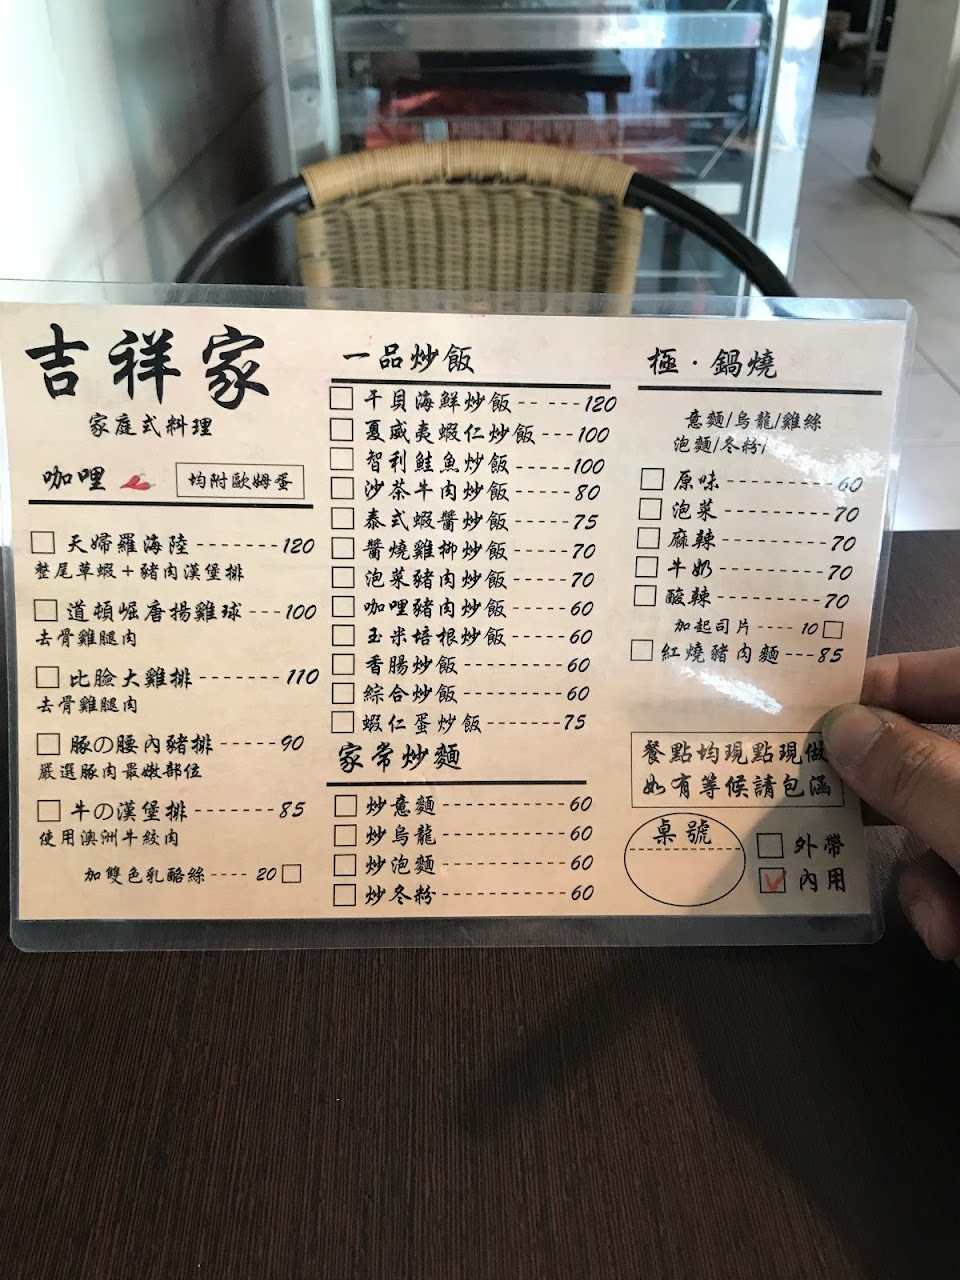 吉祥家
家庭式料理
咖哩 均附歐姆蛋
□ 天婦羅海陸--------120
整尾草蝦＋豬肉漢堡排
□ 道頓崛唐揚雞球---100
去骨雞腿肉
□ 比臉大雞排--------110
去骨雞腿肉
□ 豚の腰內豬排-----90
嚴選豚肉最嫩部位
□ 牛の漢堡排--------85
使用澳洲牛絞肉
加雙色乳酪絲----20□
一品炒飯
□ 干貝海鮮炒飯-----120
□ 夏威夷蝦仁炒飯---100
□ 智利鮭魚炒飯-----100
□ 沙茶牛肉炒飯-----80
□ 泰式蝦醬炒飯-----75
□ 醬燒雞柳炒飯-----70
□ 泡菜豬肉炒飯-----70
□ 咖哩豬肉炒飯-----60
□ 玉米培根炒飯-----60
□ 香腸炒飯---------60
□ 綜合炒飯---------60
□ 蝦仁蛋炒飯-------75
家常炒麵
□ 炒意麵-----------60
□ 炒烏龍-----------60
□ 炒泡麵-----------60
□ 炒冬粉-----------60
極·鍋燒
意麵/烏龍/雞絲
泡麵/冬粉/
□ 原味-----------60
□ 泡菜-----------70
□ 麻辣-----------70
□ 牛奶-----------70
□ 酸辣-----------70
加起司片----10□
□ 紅燒豬肉麵---85
餐點均現點現做
如有等候請包涵
桌號
□ 外帶
☑ 內用